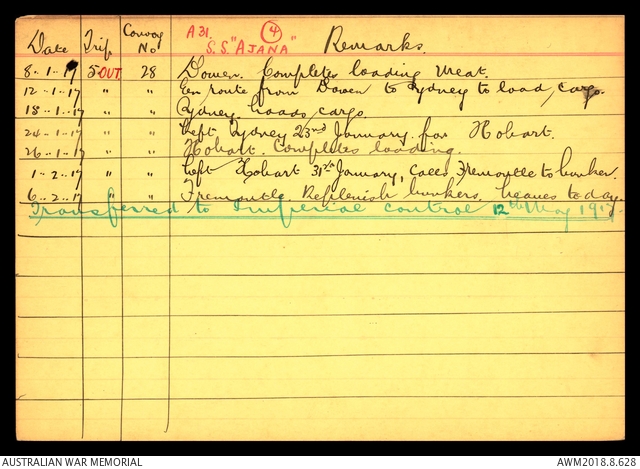 A31. (4)
Date Trip Convoy No S.S. "AJANA" Remarks.
8..1..17 5 OUT 28 Bowen. Completes loading meat.
12..1..17 " " En route from Bowen to Sydney to load cargo.
18..1..17 " " Sydney. Loads cargo.
24..1..17 " " Left Sydney 23rd January for Hobart.
26..1..17 " " Hobart. Completes loading.
1..2..17 " " Left Hobart 31st January, calls Fremantle to bunker.
6..2..17 " " Fremantle Replenish bunkers. Leaves today.
Transferred to Imperial control 12th May 1917
AUSTRALIAN WAR MEMORIAL AWM2018.8.628